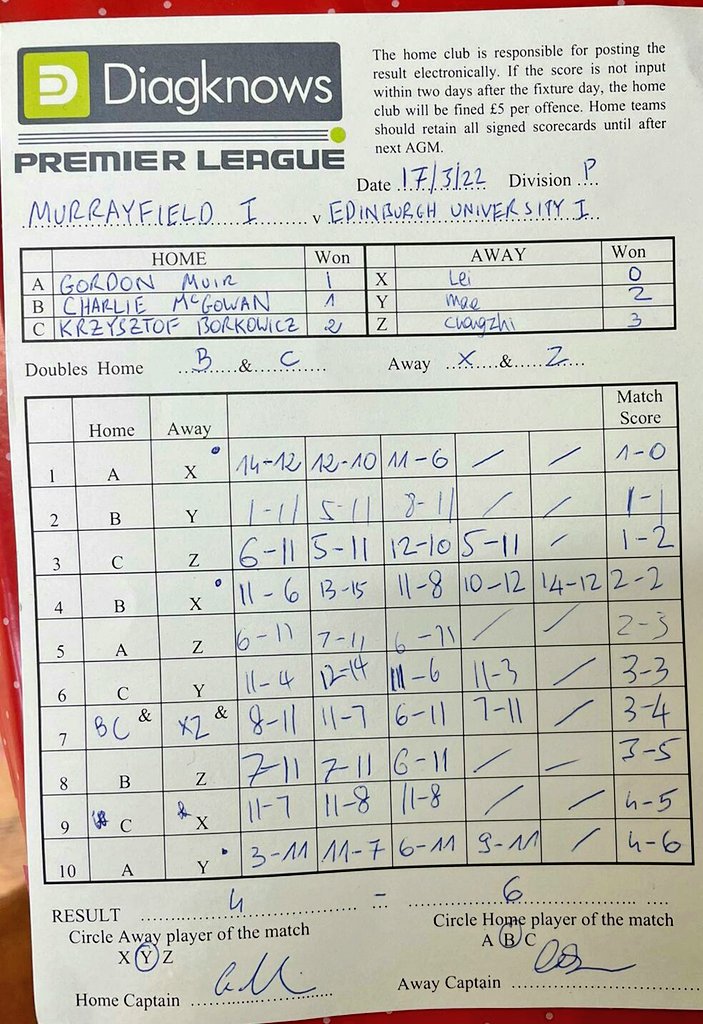 Diagknows
PREMIER LEAGUE
The home club is responsible for posting the
result electronically. If the score is not input
within two days after the fixture day, the home
club will be fined £5 per offence. Home teams
should retain all signed scorecards until after
next AGM.
Date 17/3/22 Division P
MURRAYFIELD I v EDINBURGH UNIVERSITY I
HOME Won AWAY Won
A GORDON MUIR 1 X Lei 0
B CHARLIE McGOWAN 1 Y mae 2
C KRZYSZTOF BORKOWICZ 2 Z Changzhi 3
Doubles Home B & C Away X & Z
Home Away Match Score
1 A X 14-12 12-10 11-6 / / 1-0
2 B Y 1-11 5-11 8-11 / / 1-1
3 C Z 6-11 5-11 12-10 5-11 / 1-2
4 B X 11-6 13-15 11-8 10-12 14-12 2-2
5 A Z 6-11 7-11 6-11 / / 2-3
6 C Y 11-4 12-14 11-6 11-3 / 3-3
7 BC & XZ & 8-11 11-7 6-11 7-11 / 3-4
8 B Z 7-11 7-11 6-11 / / 3-5
9 C X 11-7 11-8 11-8 / / 4-5
10 A Y 3-11 11-7 6-11 9-11 / 4-6
RESULT 4 - 6
Circle Away player of the match Circle Home player of the match
X Y Z A B C
Home Captain Away Captain